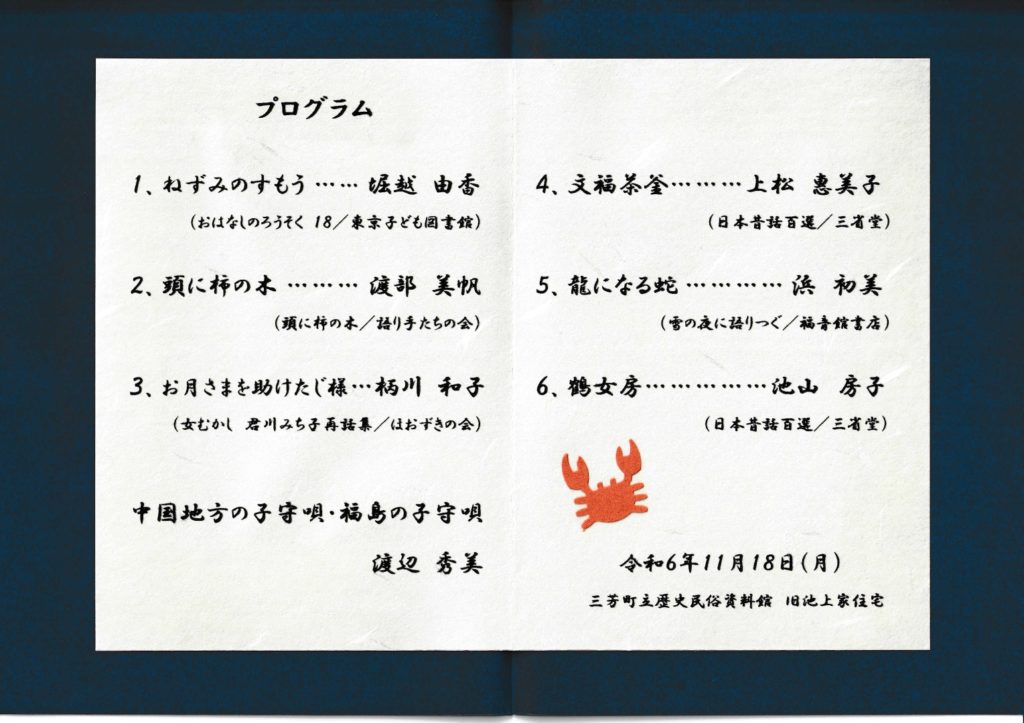 プログラム
1、ねずみのすもう……堀越 由香
(おはなしのろうそく 18/東京子ども図書館)
2、頭に柿の木………渡部 美帆
(頭に柿の木/語り手たちの会)
3、お月さまを助けたじ様…柄川 和子
(女むかし 君川みち子再話集/ほおずきの会)
中国地方の子守唄・福島の子守唄
渡辺 秀美
4、文福茶釜………上松 惠美子
(日本昔話百選/三省堂)
5、龍になる蛇…………浜 初美
(雪の夜に語りつぐ/福音館書店)
6、鶴女房……………池山 房子
(日本昔話百選/三省堂)
令和6年11月18日(月)
三芳町立歴史民俗資料館 旧池上家住宅